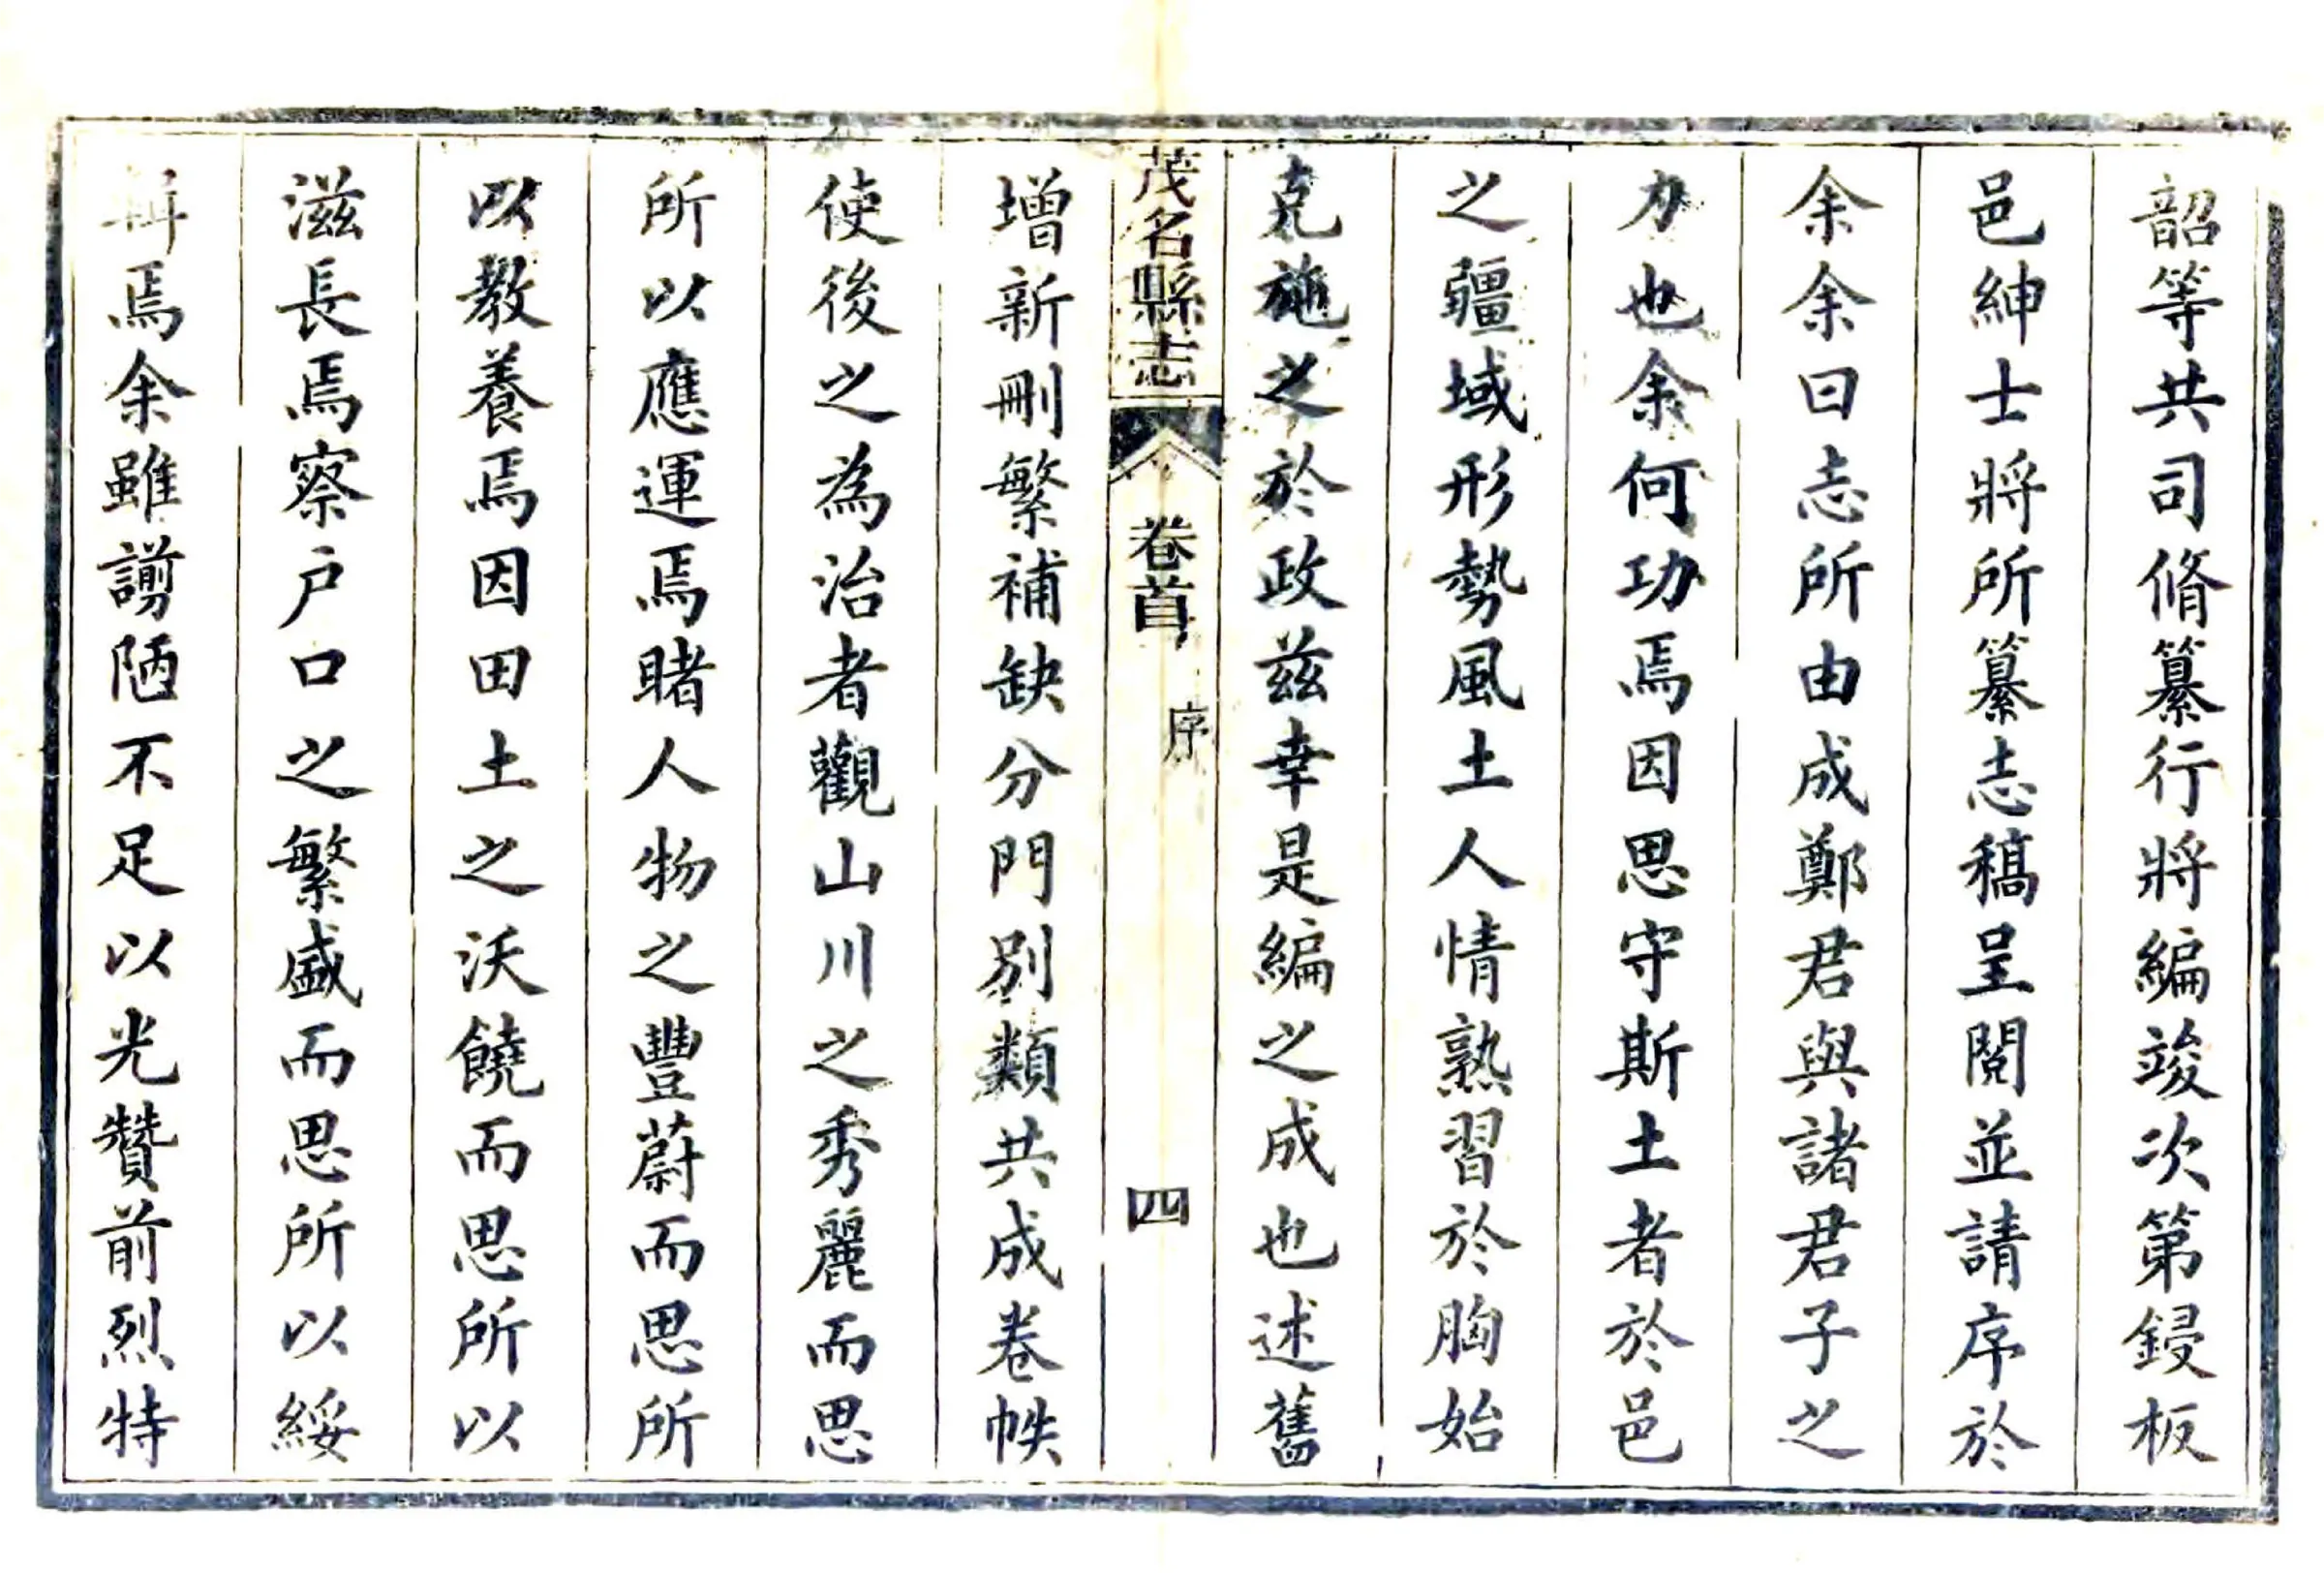 韶等共司脩纂行將編竣次第鋟板
邑紳士將所纂志稿呈閱並請序於
余余曰志所由成鄭君與諸君子之
力也余何功焉因思守斯土者於邑
之疆域形勢風土人情熟習於胸始
克施之於政茲幸是編之成也述舊
茂名縣志
卷首
序
四
增新刪繁補缺分門別類共成卷帙
使後之為治者觀山川之秀麗而思
所以應運焉睹人物之豐蔚而思所
以教養焉因田土之沃饒而思所以
滋長焉察戶口之繁盛而思所以綏
輯焉余雖謭陋不足以光贊前烈特